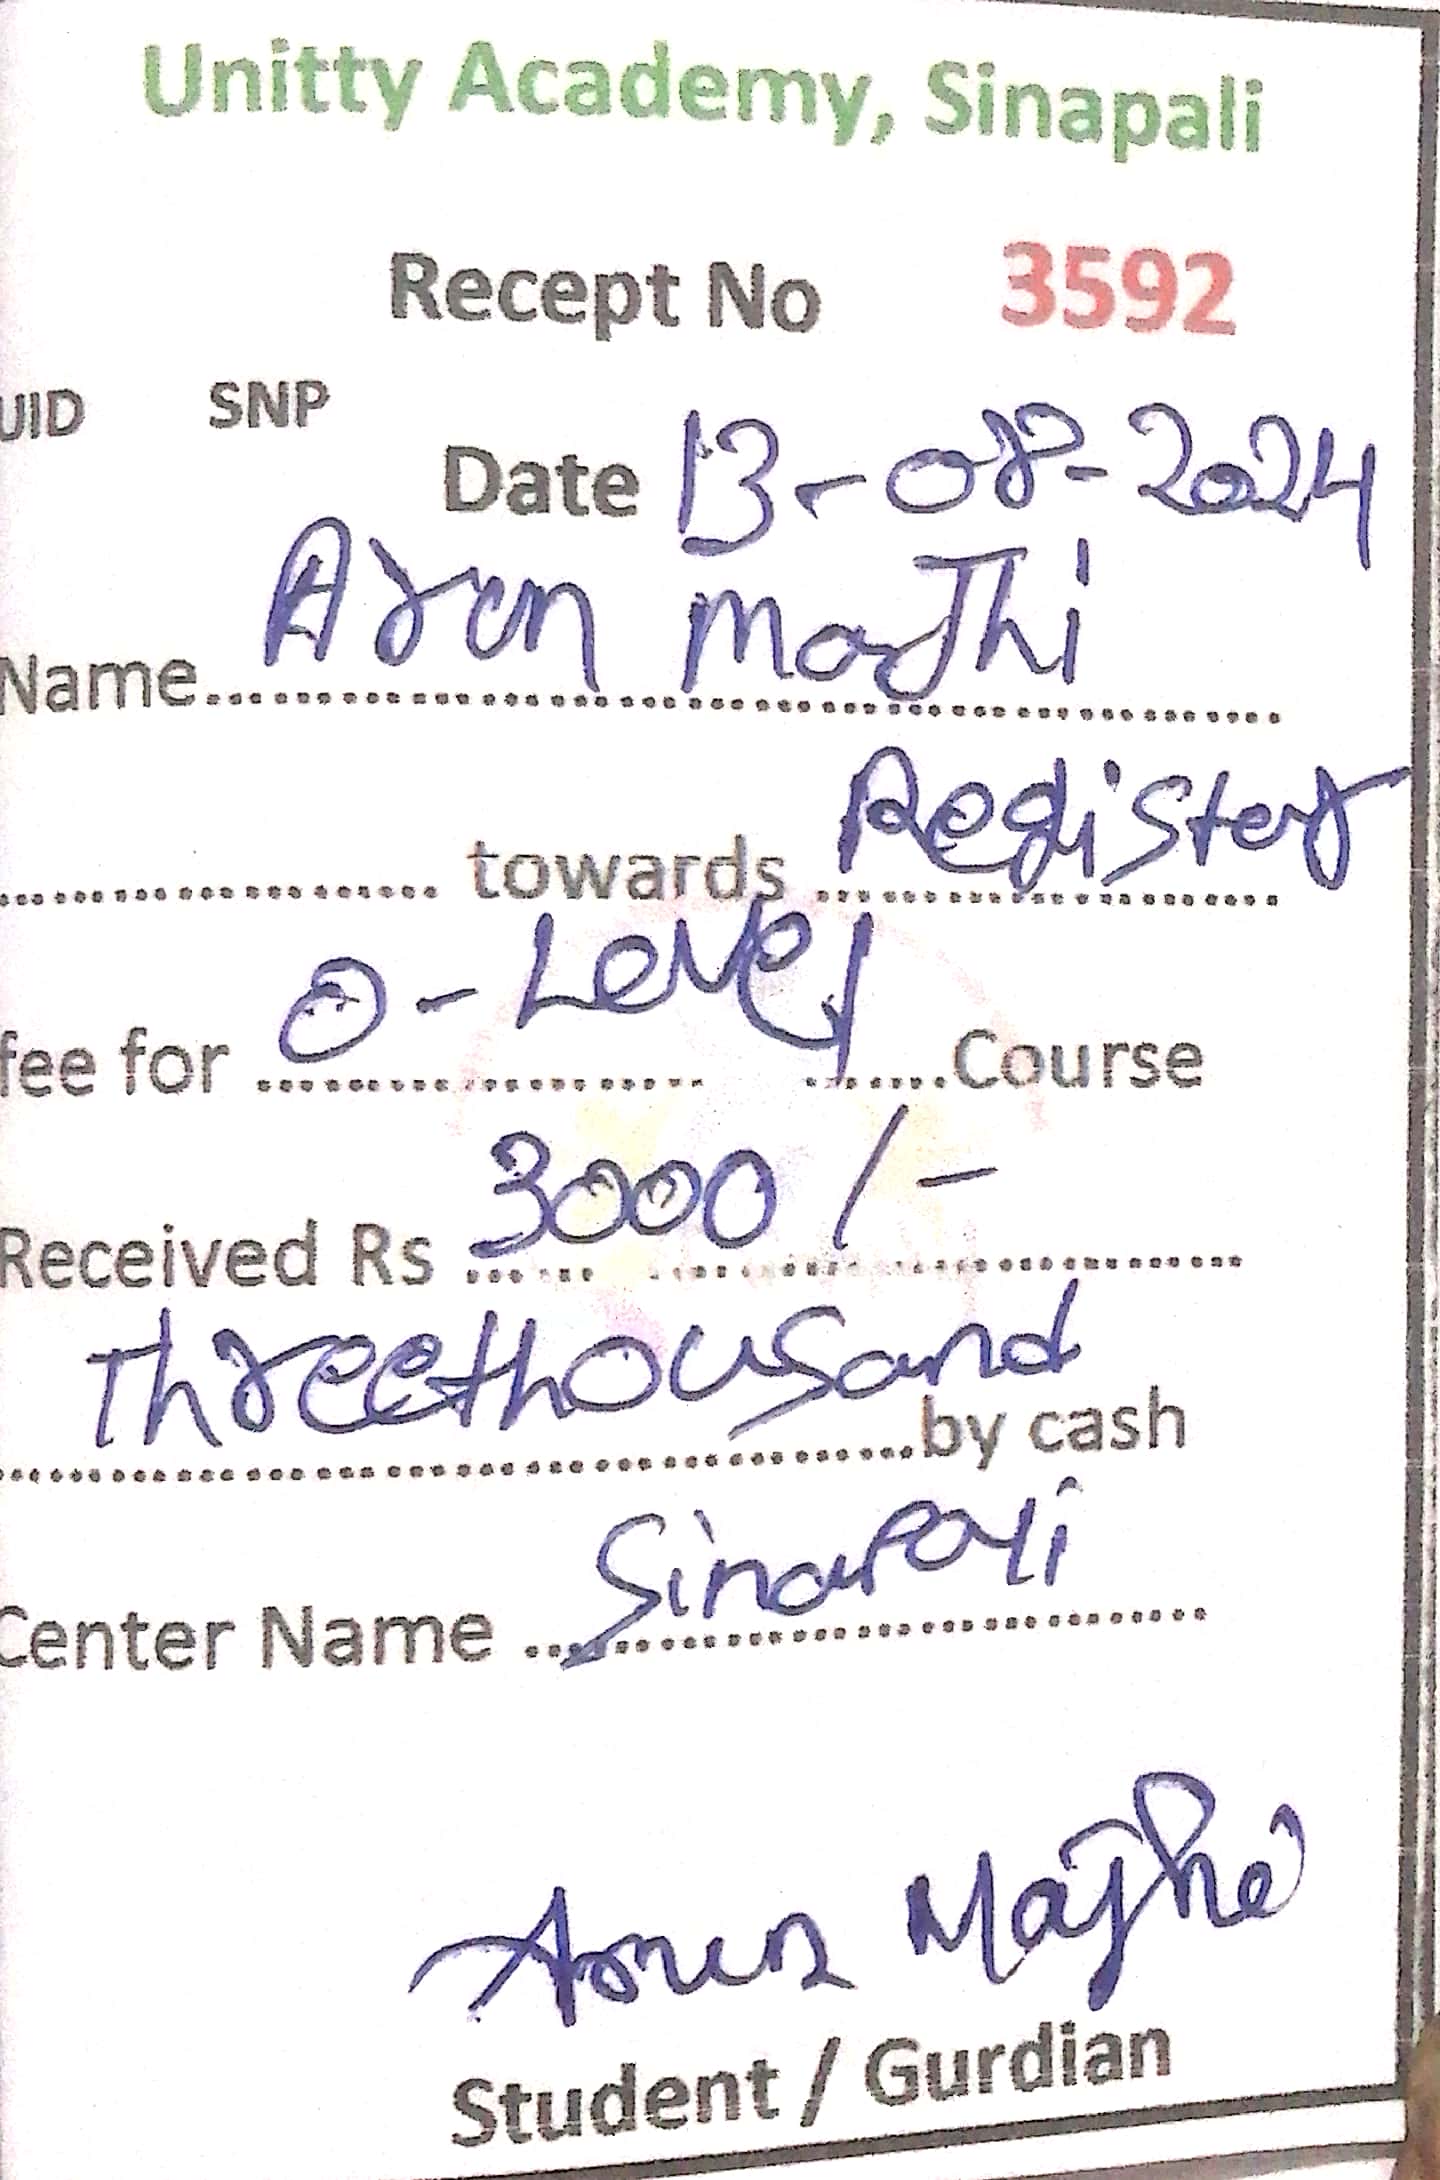 Unitty Academy, Sinapali
Recept No 3592
UID SNP
Date 13-08-2024
Name Arun Majhi
towards Register
fee for O-Level Course
Received Rs 3000/-
Threethousand by cash
Center Name Sinapali
Arun Majhi
Student / Gurdian